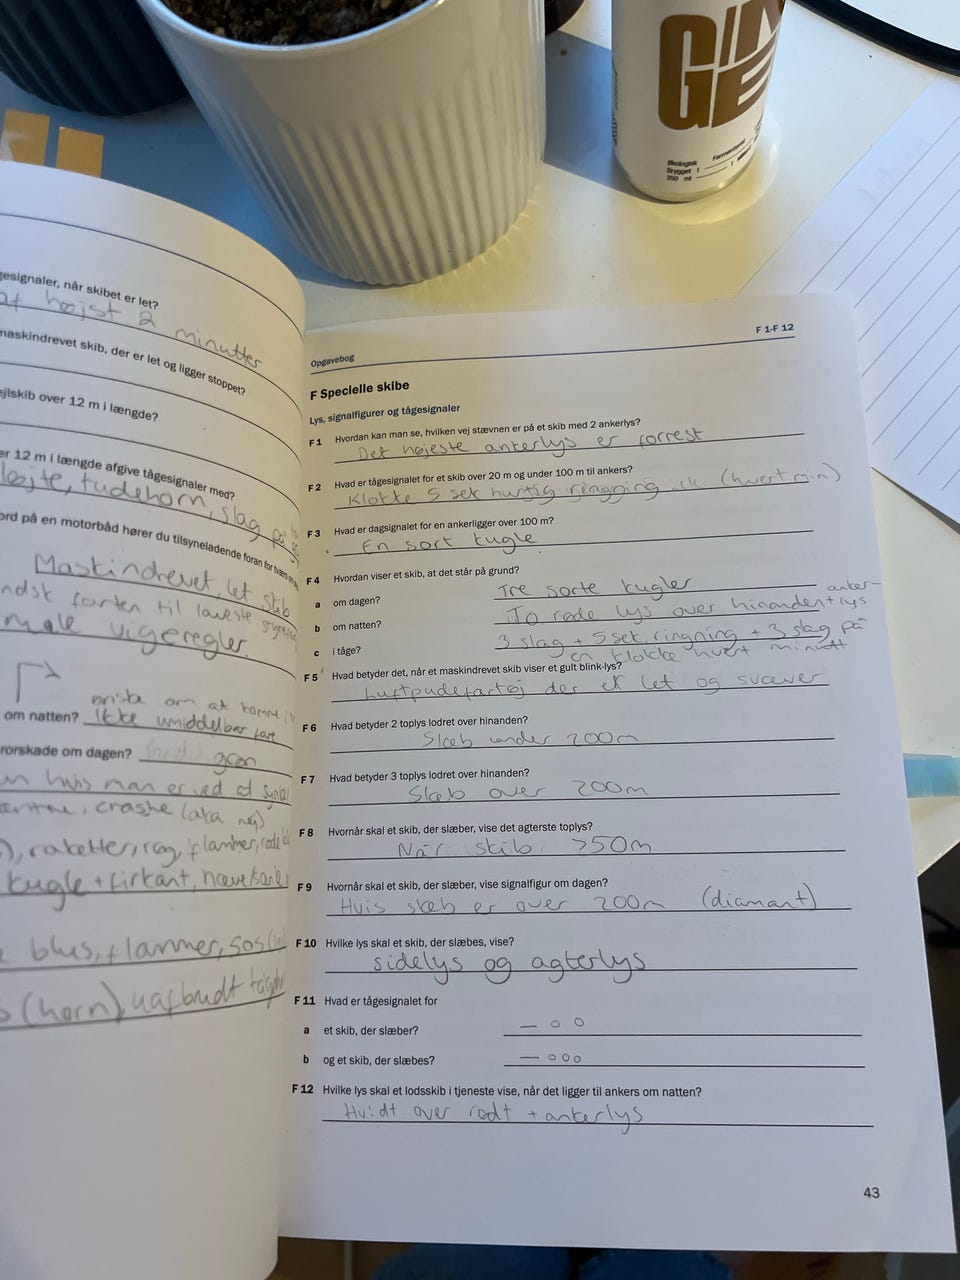 GIN
GE
Økologisk
Brygget
250 ml
gesignaler, når skibet er let?
af højst 2 minutter
maskindrevet skib, der er let og ligger stoppet?
ejlskib over 12 m i længde?
er 12 m i længde afgive tågesignaler med?
fløjte, tudehorn, slag på
ord på en motorbåd hører du tilsyneladende foran for tværs en
Maskindrevet, let skib
ndsk farten til laveste
male vigeregler.
ønske om at komme i
om natten? ikke umiddelbar fare
rorskade om dagen? grøn
un hvis man er ved at synke
crashe (aka nej)
), raketter, røg, flammer, røde
kugle + firkant,
blus, flammer, SOS
(horn) uafbrudt
Opgavebog
F 1-F 12
F Specielle skibe
Lys, signalfigurer og tågesignaler
F 1 Hvordan kan man se, hvilken vej stævnen er på et skib med 2 ankerlys?
Det højeste ankerlys er forrest
F 2 Hvad er tågesignalet for et skib over 20 m og under 100 m til ankers?
Klokke 5 sek hurtig ringning (hvert min)
F 3 Hvad er dagsignalet for en ankerligger over 100 m?
En sort kugle
F 4 Hvordan viser et skib, at det står på grund?
a om dagen? Tre sorte kugler
b om natten? To røde lys over hinanden + anker-
lys
c i tåge? 3 slag + 5 sek. ringning + 3 slag på
en klokke hvert minutt
F 5 Hvad betyder det, når et maskindrevet skib viser et gult blink-lys?
Luftpudefartøj der er let og svæver
F 6 Hvad betyder 2 toplys lodret over hinanden?
Slæb under 200m
F 7 Hvad betyder 3 toplys lodret over hinanden?
Slæb over 200m
F 8 Hvornår skal et skib, der slæber, vise det agterste toplys?
Når skib >50m
F 9 Hvornår skal et skib, der slæber, vise signalfigur om dagen?
Hvis slæb er over 200m (diamant)
F 10 Hvilke lys skal et skib, der slæbes, vise?
sidelys og agterlys
F 11 Hvad er tågesignalet for
a et skib, der slæber? — o o
b og et skib, der slæbes? — o o o
F 12 Hvilke lys skal et lodsskib i tjeneste vise, når det ligger til ankers om natten?
Hvidt over rødt + ankerlys
43